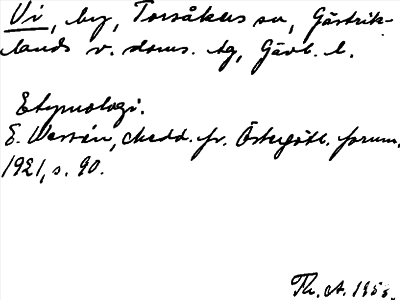 Vi, by, Torsåkers sn, Gästrik-
lands v. doms. tg, Gävl. l.
Etymologi.
E. Wessén, Medd. fr. Östergötl. fornm.
1921, s. 90.
Th. A. 1955.